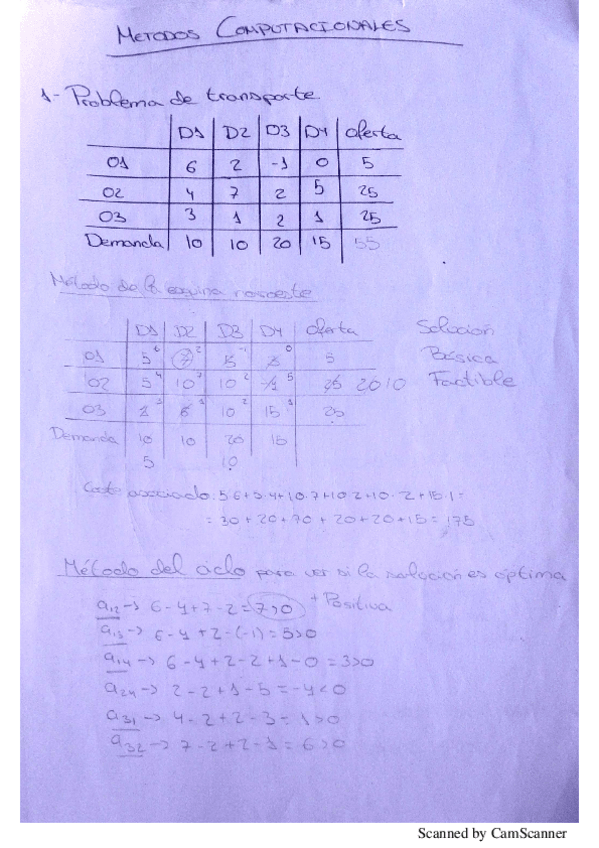 METODOS COMPUTACIONALES
1- Problema de transporte
D1 D2 D3 D4 Oferta
O1 6 2 -1 0 5
O2 4 7 2 5 25
O3 3 1 2 1 25
Demanda 10 10 20 15 55
Método de la esquina noroeste
D1 D2 D3 D4 Oferta Solución
O1 5 6 7 2 5 -1 3 0 5 Básica
O2 5 4 10 7 10 2 -4 5 25 20 10 Factible
O3 1 3 6 1 10 2 15 1 25
Demanda 10 10 20 15
5 10
Coste asociado: 5·6+5·4+10·7+10·2+10·2+15·1=
= 30+20+70+20+20+15 = 175
Método del ciclo para ver si la solución es óptima
a12 -> 6-4+7-2=7>0 + Positiva
a13 -> 6-4+2-(-1)=5>0
a14 -> 6-4+2-2+1-0=3>0
a24 -> 2-2+1-5=-4<0
a31 -> 4-2+2-3=1>0
a32 -> 7-2+2-1=6>0
Scanned by CamScanner